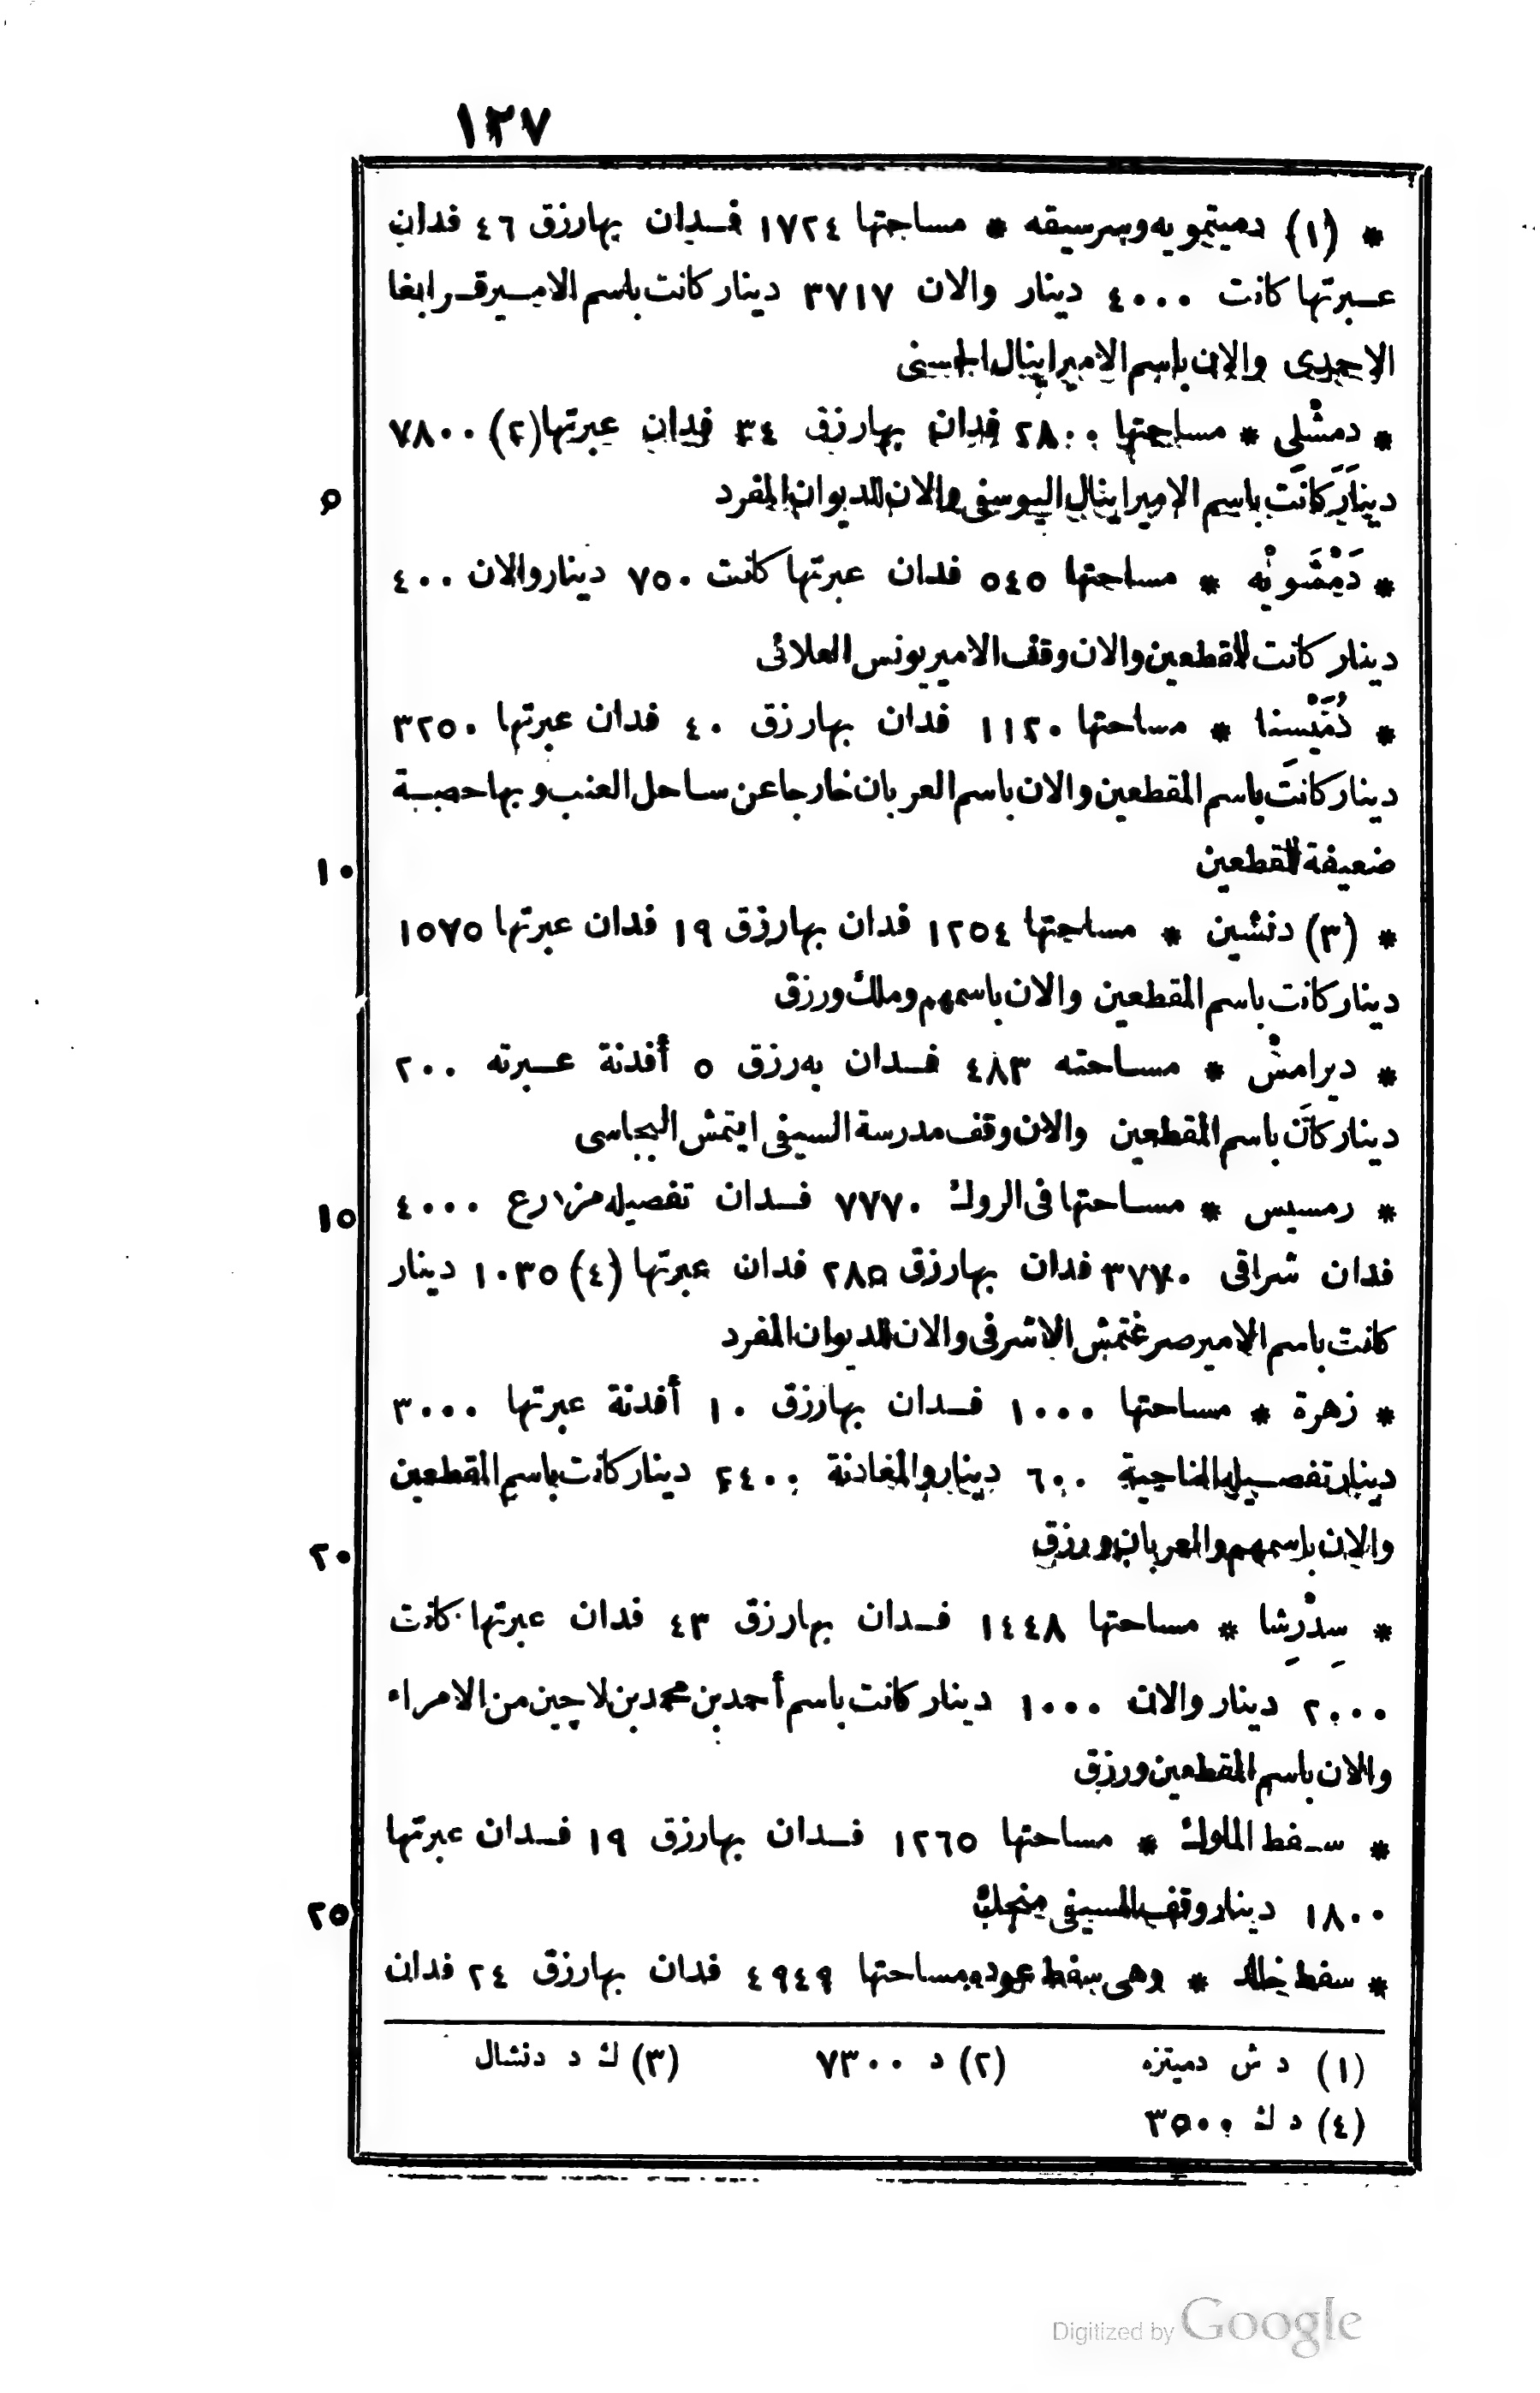 ١٢٧
* (١) دميتمويه وسرسيقه * مساحتها ١٧٢٤ فدان بها رزق ٤٦ فدان
عبرتها كانت ٤٠٠٠ دينار والان ٣٧١٧ دينار كانت باسم الامير قرابغا
الاحمدى والان باسم الامير اينال الحسنى
* دمشْلى * مساحتها ٢٨٠٠ فدان بها رزق ٣٤ فدان عبرتها (٢) ٧٨٠٠
دينار كانت باسم الامير اينال اليوسفى والان للديوان المفرد
٥
* دَمْشَويْه * مساحتها ٥٤٥ فدان عبرتها كانت ٧٥٠ دينار والان ٤٠٠
دينار كانت للمقطعين والان وقف الامير يونس العلائى
* دُمَيْسنا * مساحتها ١١٢٠ فدان بها رزق ٤٠ فدان عبرتها ٣٢٥٠
دينار كانت باسم المقطعين والان باسم العربان خارجا عن ساحل العنب وبها حصة
ضعيفة للمقطعين
١٠
* (٣) دنشين * مساحتها ١٢٥٤ فدان بها رزق ١٩ فدان عبرتها ١٥٧٥
دينار كانت باسم المقطعين والان باسمهم وملك ورزق
* ديرامسْ * مساحته ٤٨٣ فدان به رزق ٥ أفدنة عبرته ٢٠٠
دينار كان باسم المقطعين والان وقف مدرسة السيفى ايتمش البجاسى
* رمسيس * مساحتها فى الروك ٧٧٧٠ فدان تفصيله مزارع ٤٠٠٠
١٥
فدان شراقى ٣٧٧٠ فدان بها رزق ٢٨٥ فدان عبرتها (٤) ١٠٣٥ دينار
كانت باسم الامير صرغتمش الاشرفى والان للديوان المفرد
* زهرة * مساحتها ١٠٠٠ فدان بها رزق ١٠ أفدنة عبرتها ٣٠٠٠
دينار تفصيله الناحية ٦٠٠ دينار والمغادنة ٢٤٠٠ دينار كانت باسم المقطعين
والان باسمهم والعربان ورزق
٢٠
* سِدْرِشا * مساحتها ١٤٤٨ فدان بها رزق ٤٣ فدان عبرتها كانت
٢٠٠٠ دينار والان ١٠٠٠ دينار كانت باسم أحمد بن محمد بن لاجين من الامراء
والان باسم المقطعين ورزق
* سفط الملوك * مساحتها ١٢٦٥ فدان بها رزق ١٩ فدان عبرتها
١٨٠٠ دينار وقف السيفى منجك
٢٥
* سفط خالد * وهى سفط عوده مساحتها ٤٩٤٩ فدان بها رزق ٢٤ فدان
(١) د ش دميتزه (٢) د ٧٣٠٠ (٣) ك د دنشال
(٤) د ك ٣٥٠٠
Digitized by Google